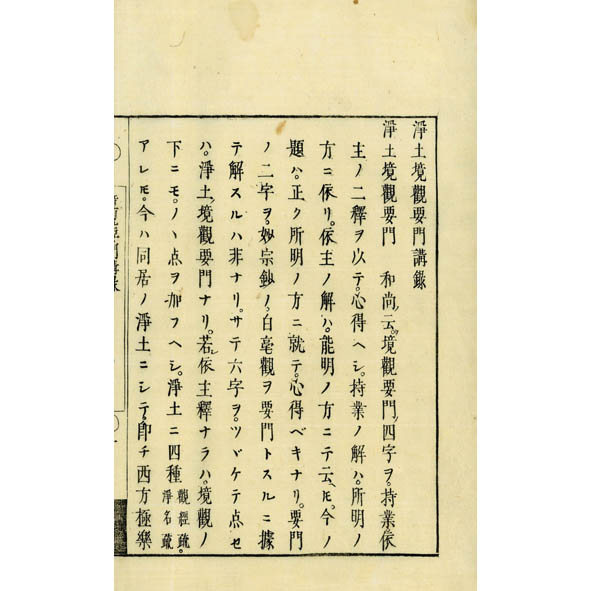 淨土境觀要門講錄
淨土境觀要門　和尚ノ云。境觀要門ノ四字ヲ。持業依
主ノ二釋ヲ以テ。心得ヘシ。持業ノ解ハ。所明ノ
方ニ依リ。依主ノ解ハ。能明ノ方ニテ云ヘ𪜈。今ノ
題ハ。正ク所明ノ方ニ就テ。心得ベキナリ。要門
ノ二字ヲ。妙宗鈔ノ。白毫觀ヲ要門トスルニ據
テ解スルハ非ナリ。サテ六字ヲ。ツヾケテ点セ
ハ。淨土ノ境觀要門ナリ。若シ依主釋ナラハ。境觀ノ
下ニモ。ノヽ点ヲ加フヘシ。淨土ニ四種觀經疏。淨名疏
アレ𪜈。今ハ同居ノ淨土ニシテ。即チ西方極樂